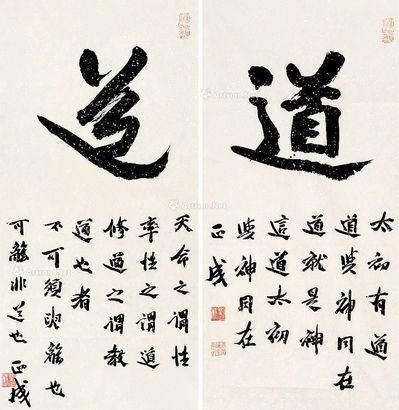 道
太初有道
道與神同在
道就是神
這道太初
與神同在
正成
道
天命之謂性
率性之謂道
修道之謂教
道也者
不可須臾離也
可離非道也 正成